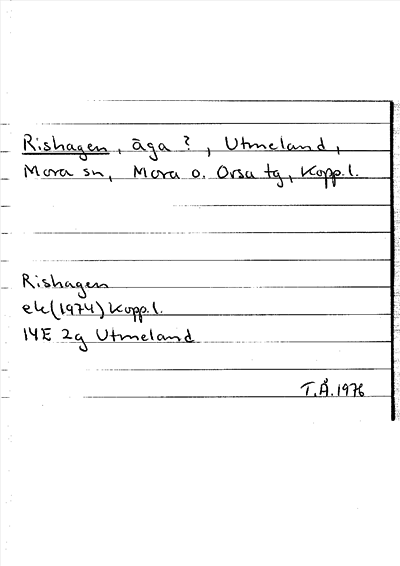 Rishagen, äga ?, Utmeland,
Mora sn, Mora o. Orsa tg, Kopp. l.
Rishagen
ek (1974) Kopp. l.
14E 2g Utmeland
T.Å. 1976